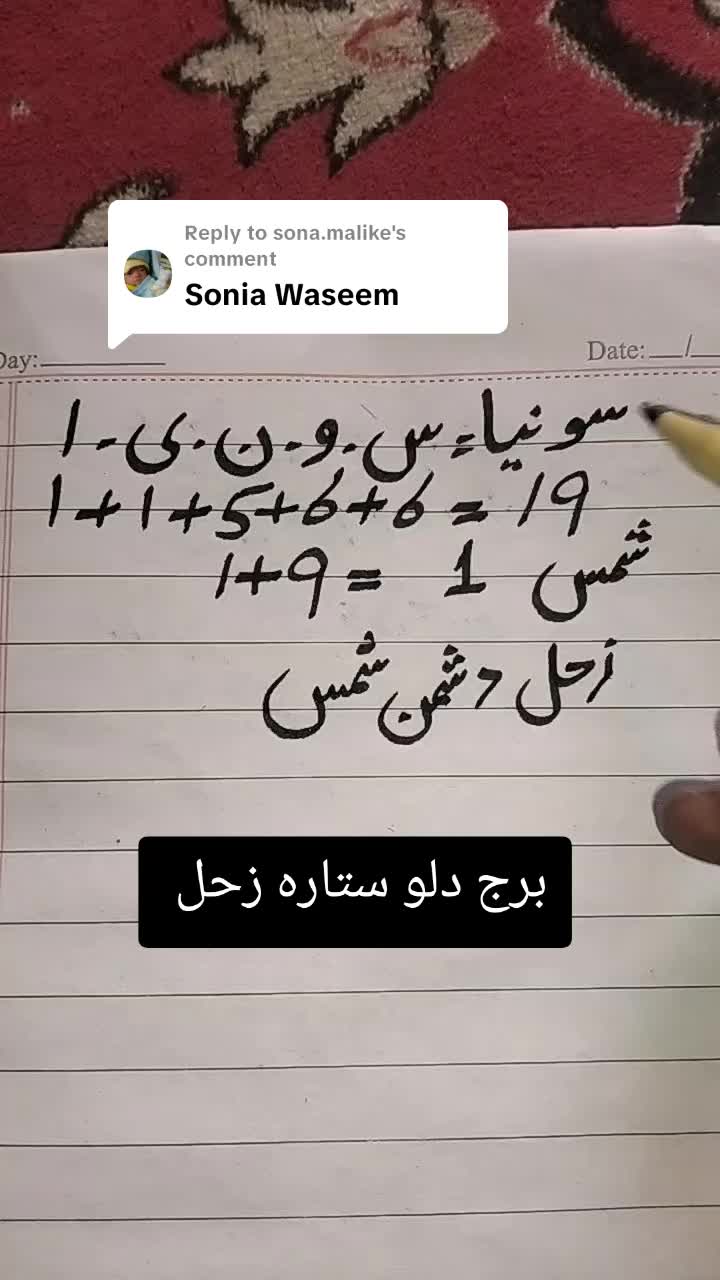 Reply to sona.malike's
comment
Sonia Waseem
Day:
Date: __/__
سونیا = س . و . ن . ی . ا
1+1+5+6+6 = 19
1+9 = 1 شمس
زحل دشمن شمس
برج دلو ستارہ زحل